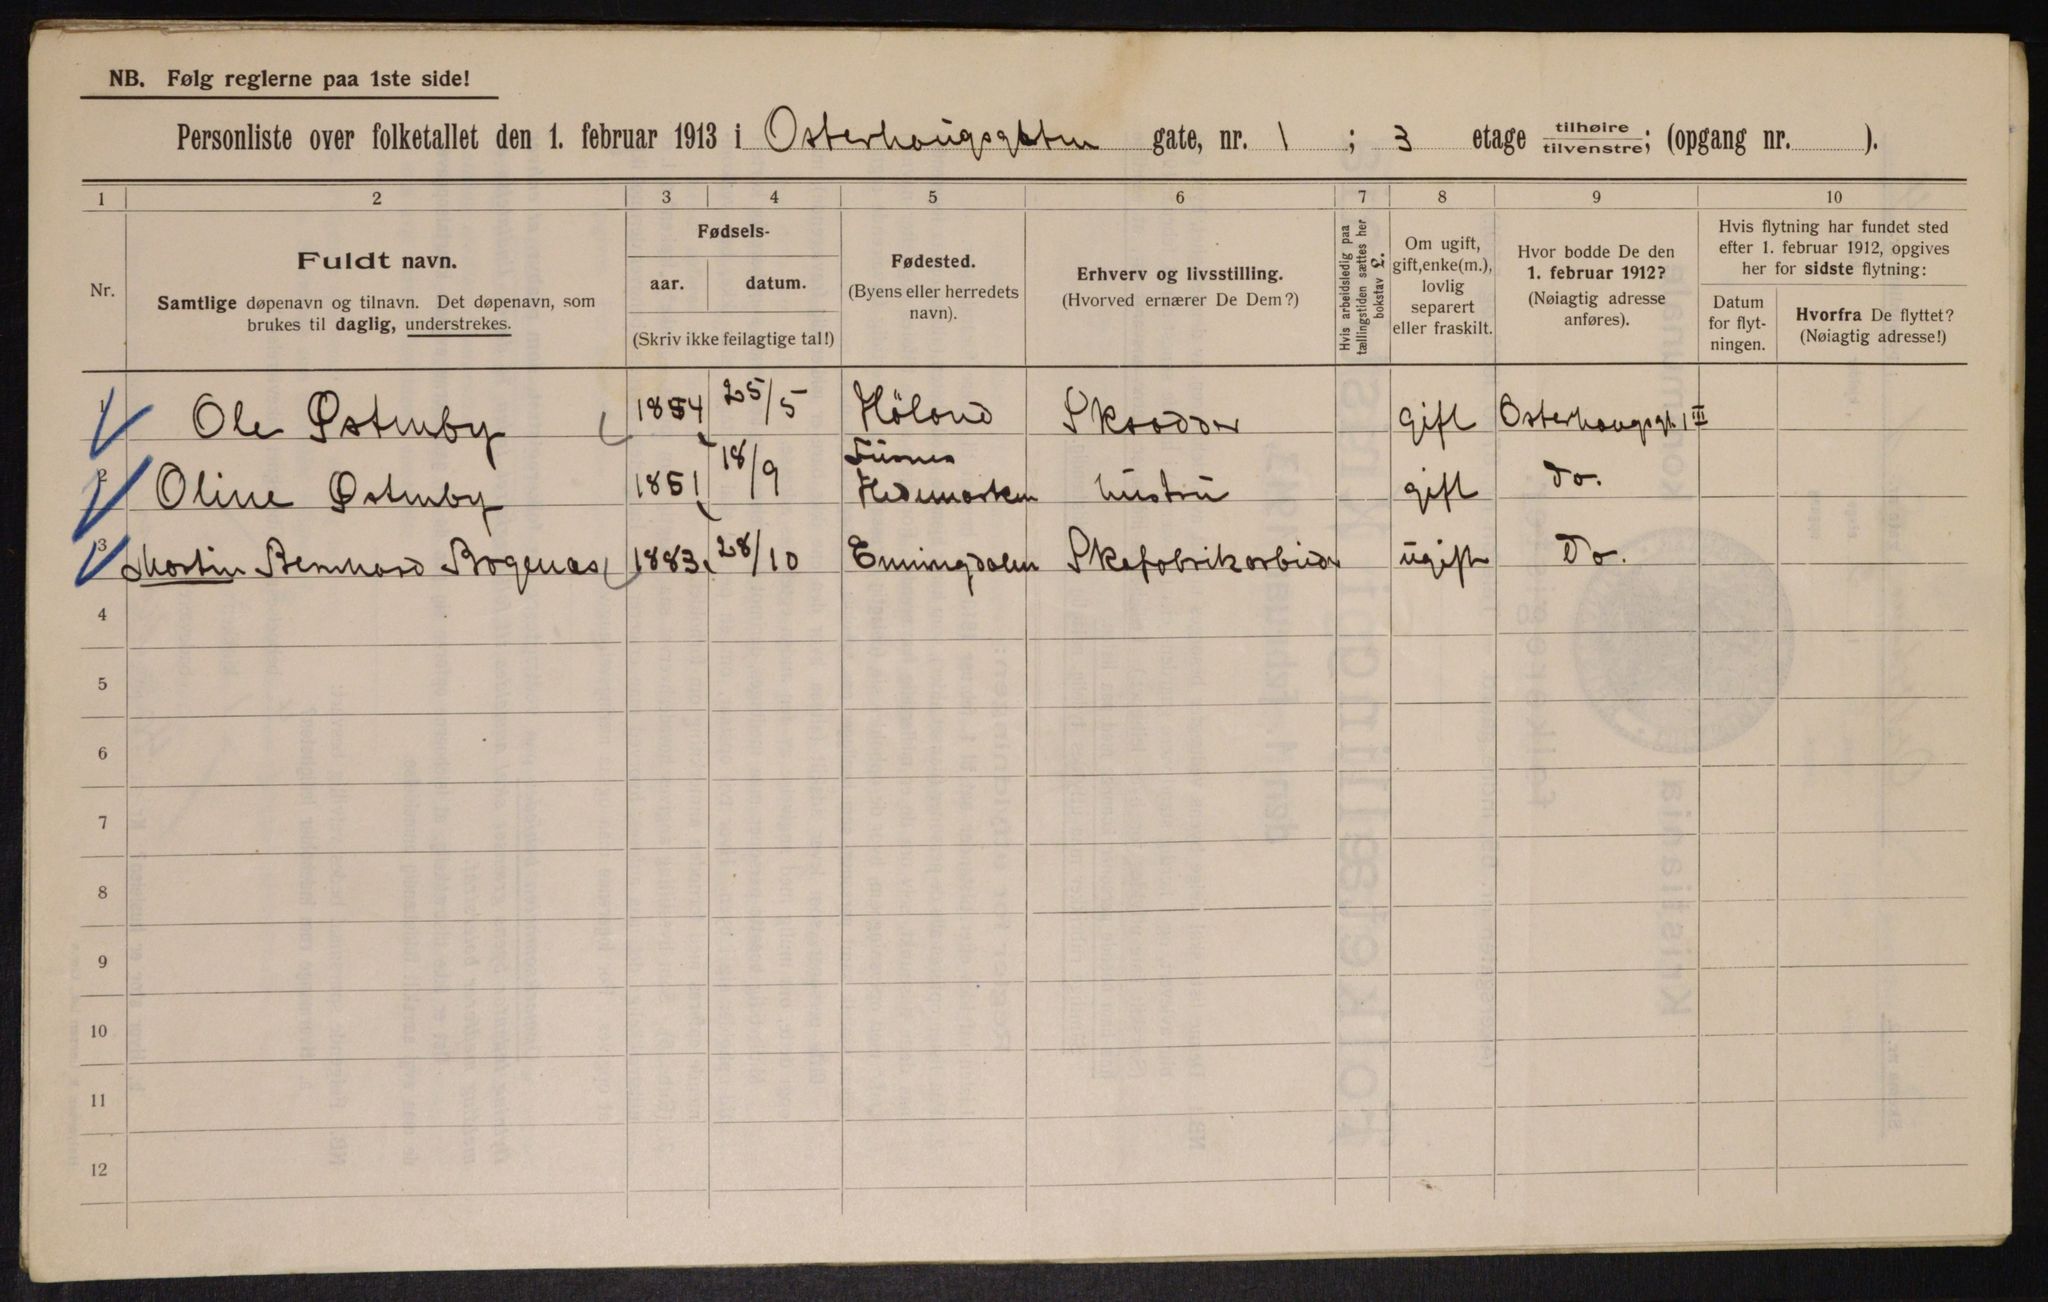 NB. Følg reglerne paa 1ste side!
Personliste over folketallet den 1. februar 1913 i Osterhaugsgaten gate, nr. 1 ; 3 etage tilhøire tilvenstre; (opgang nr. ).
1 2 3 4 5 6 7 8 9 10
Nr.
Fuldt navn.
Samtlige døpenavn og tilnavn. Det døpenavn, som
brukes til daglig, understrekes.
Fødsels-
aar. datum.
(Skriv ikke feilagtige tal!)
Fødested.
(Byens eller herredets
navn).
Erhverv og livsstilling.
(Hvorved ernærer De Dem?)
Hvis arbeidsledig paa
tællingstiden sættes her
bokstav L.
Om ugift,
gift, enke(m.),
lovlig
separert
eller fraskilt.
Hvor bodde De den
1. februar 1912?
(Nøiagtig adresse
anføres).
Hvis flytning har fundet sted
efter 1. februar 1912, opgives
her for sidste flytning:
Datum
for flyt-
ningen.
Hvorfra De flyttet?
(Nøiagtig adresse!)
1 Ole Østmby 1854 25/5 Høland Skrædder gift Osterhaugsgt. 1 III
2 Oline Østmby 1851 18/9 Furnes
Hedemarken hustru gift do.
3 Martin Bernhard Bogenæs 1883 28/10 Enningdalen Skofabrikarbeider ugift do.
4
5
6
7
8
9
10
11
12